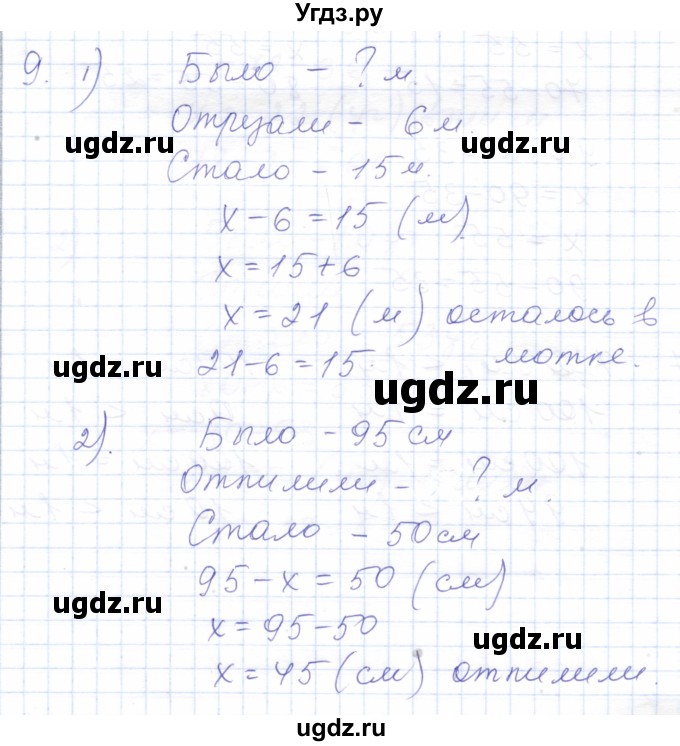 Угдз.ру
9. 1) Было – ? м.
Отрезали – 6 м.
ugdz.ru
ugdz.ru
Стало – 15 м.
x – 6 = 15 (м).
x = 15 + 6
x = 21 (м) осталось в
мотке.
21 – 6 = 15.
ugdz.ru
ugdz.ru
2). Было – 95 см
Отпилили – ? м.
Стало – 50 см
95 – x = 50 (см)
ugdz.ru
x = 95 – 50
ugdz.ru
x = 45 (см) отпилили.
ugdz.ru